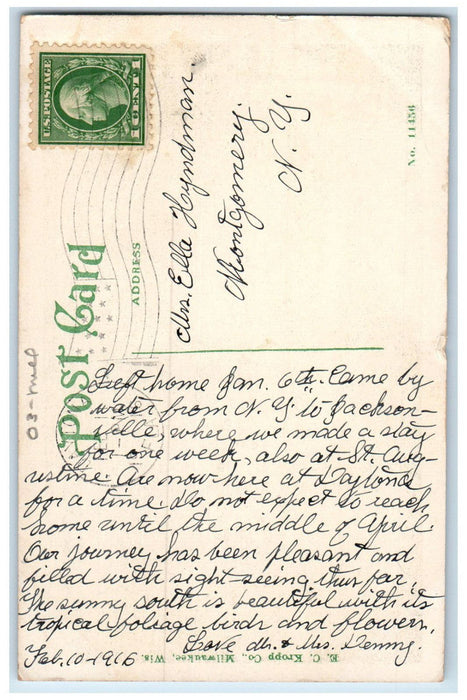 U.S. POSTAGE
1 CENT 1
Post Card
ADDRESS
No. 11456
Mrs. Ella Hyndman.
Montgomery.
N. Y.
03-
Left home Jan. 6th. Came by
water from N. Y. to Jackson-
ville, where we made a stay
for one week, also at St. Aug-
ustine. Are now here at Daytona
for a time. Do not expect to reach
home until the middle of April.
Our journey has been pleasant and
filled with sight-seeing thus far.
The sunny south is beautiful with its
tropical foliage birds and flowers.
Love Mr. & Mrs.
Feb. 10-1916
E. C. Kropp Co., Milwaukee, Wis.